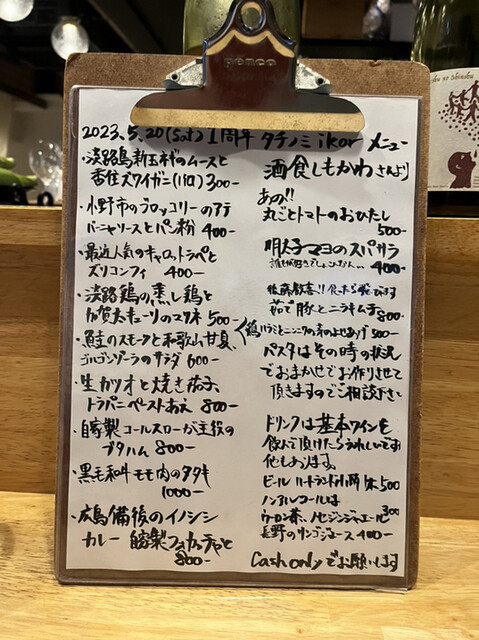 penco
2023.5.20(Sat) 1周年 タチノミ ikor メニュー
・淡路島新玉ネギのムースと
香住ズワイガニ 300-
・小野市のブロッコリーのアテ
バーニャソースとパン粉 400-
・最近人気のキャロットラペと
ズリコンフィ 400-
・淡路鶏の蒸し鶏と
加賀太キューリのマリネ 500-
・鮭のスモークと和歌山甘夏、
ゴルゴンゾーラのサラダ 600-
・生カツオと焼き茄子、
トラパニペーストあえ 800-
・自家製コールスローが主役の
ブタハム 800-
・黒毛和牛モモ肉のタタキ
1000-
・広島備後のイノシシ
カレー 自家製フォカッチャと
800-
酒食しもかわさんより
あの!!
丸ごとトマトのおひたし
500-
明太子マヨのスパサラ
400-
茹で豚とニラキムチ 800-
500-
パスタはその時の状況
でおまかせでお作りさせて
頂きますのでご相談下さい
ドリンクは基本ワインを
飲んで頂けたらうれしいです
他もあります。
ビール ハートランド小瓶 1本 500
ノンアルコールは
ウーロン茶、ノセジンジャエール 300
長野のリンゴジュース 400-
Cash onlyでお願いします